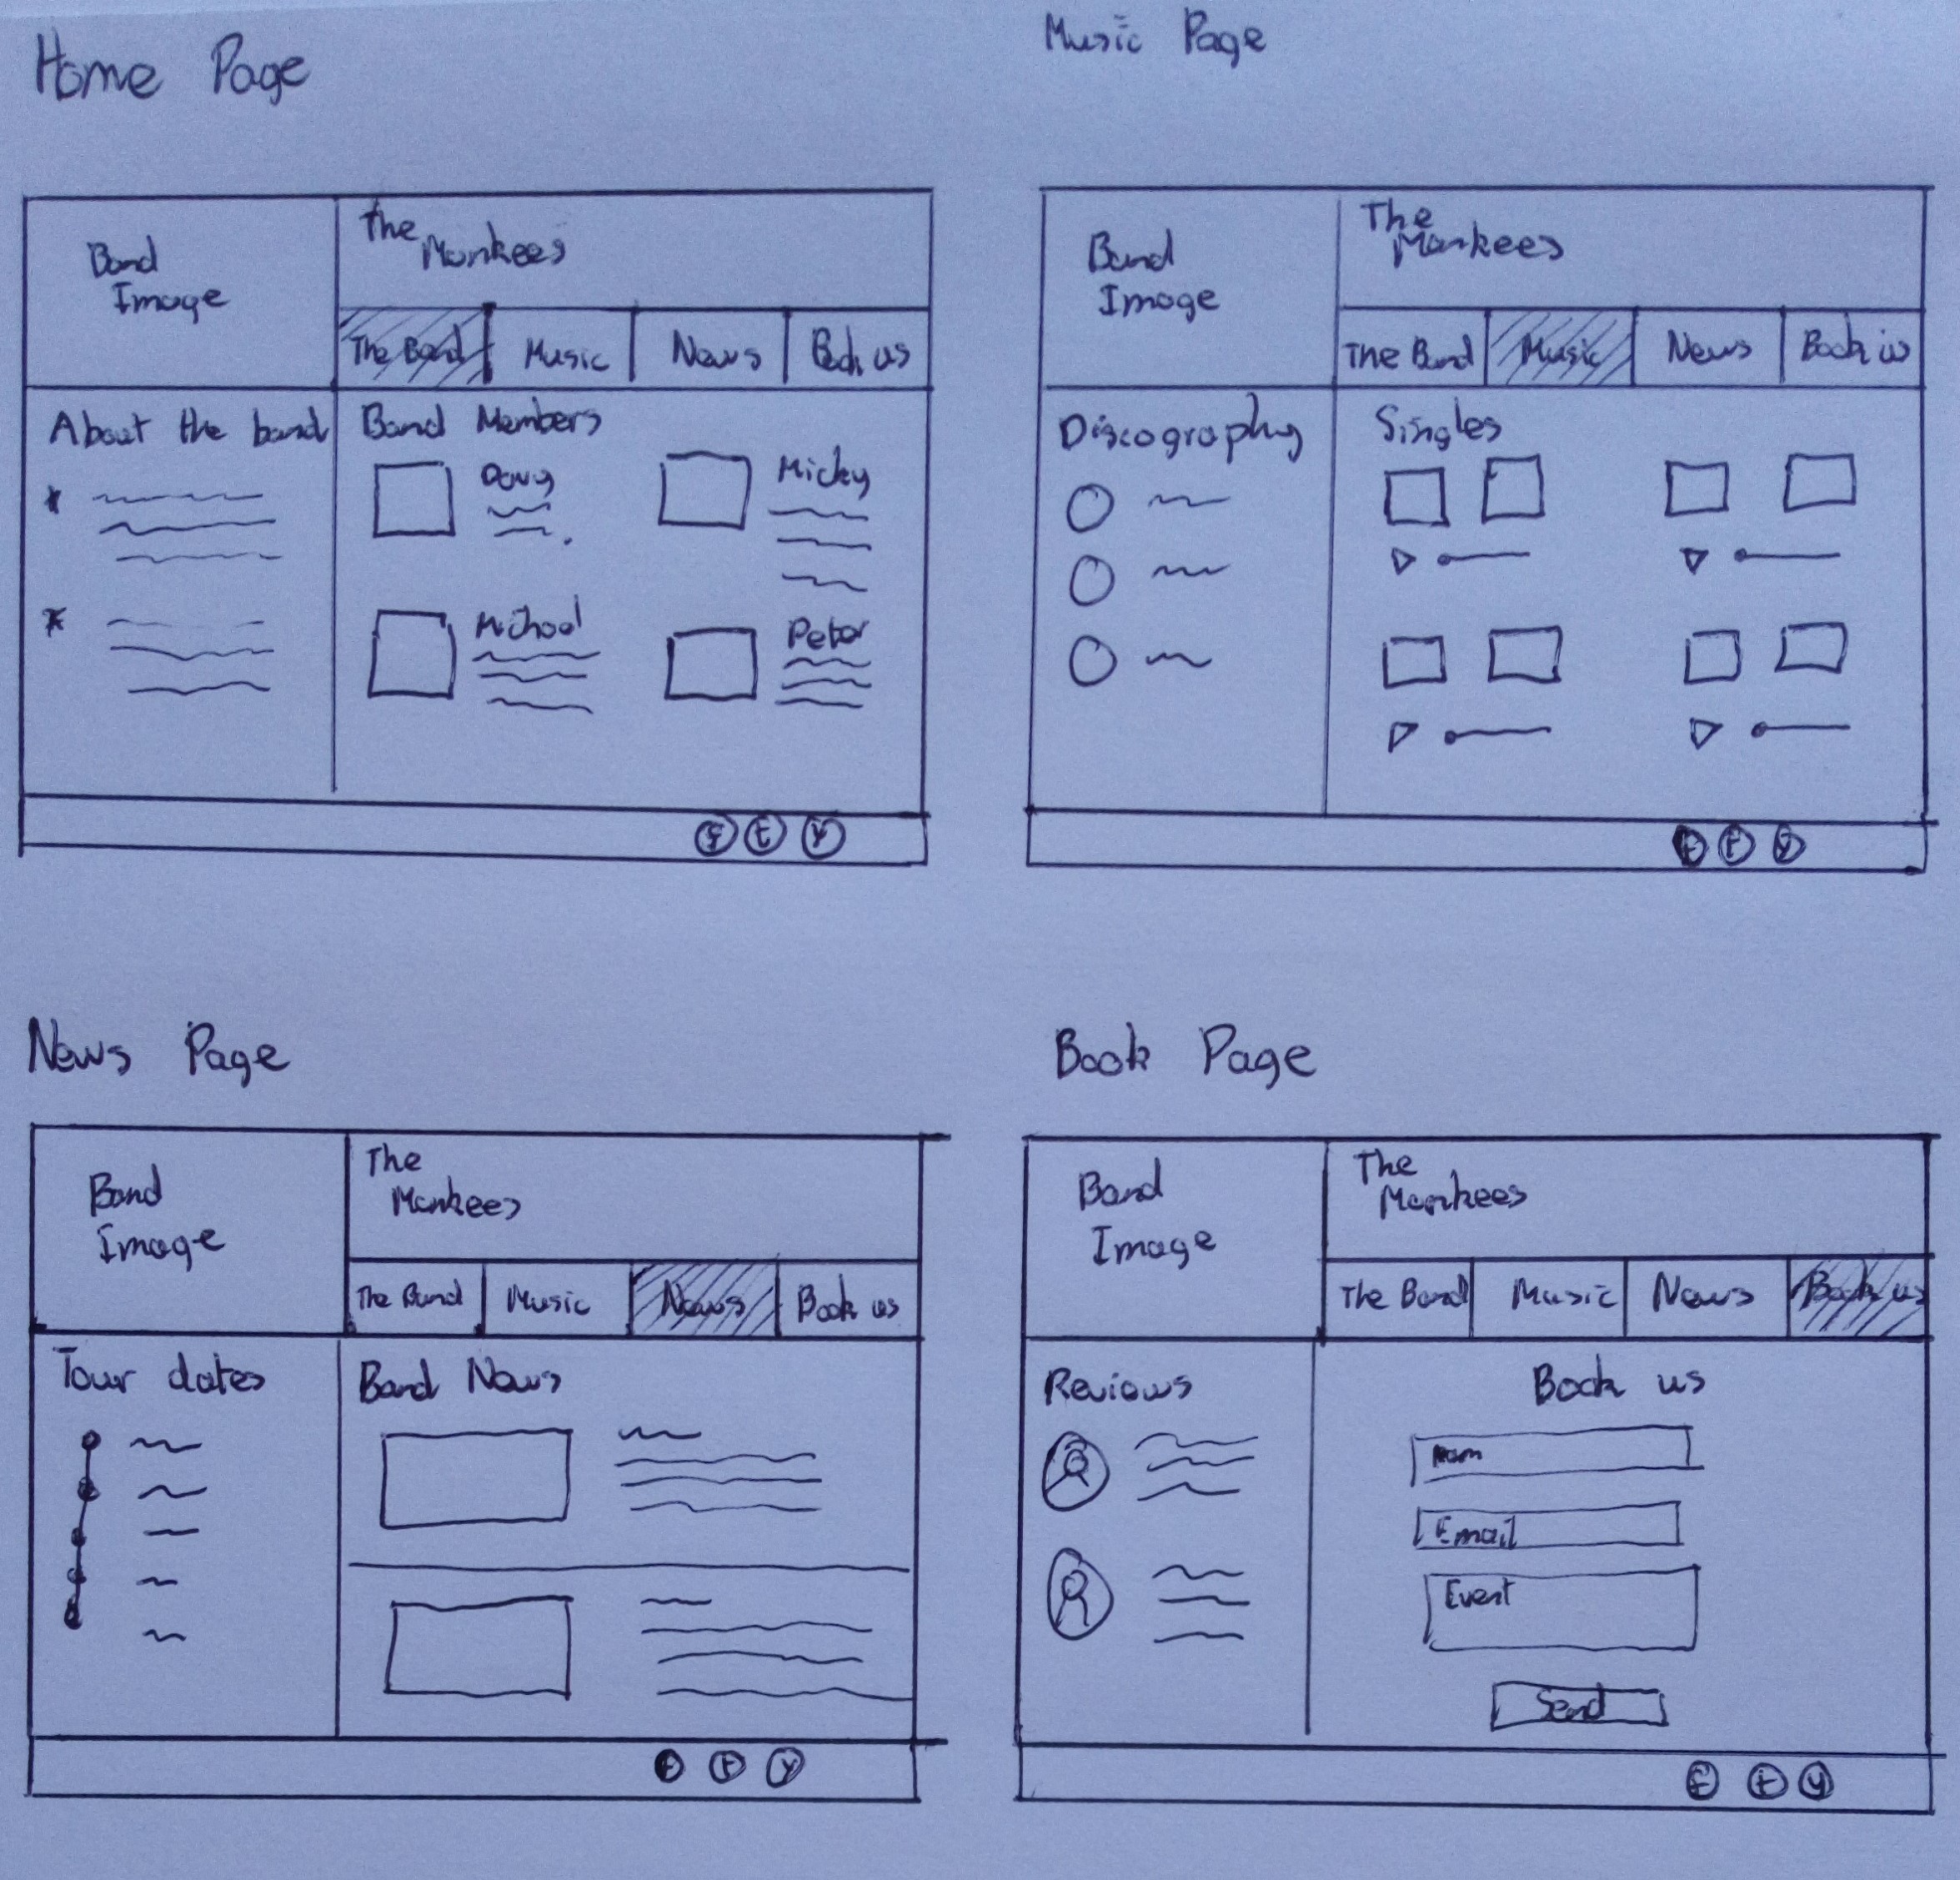 Home Page
Band
Image
The
Monkees
The Band Music News Book us
About the band
Band Members
Davy
Micky
Michael
Peter
f t y
Music Page
Band
Image
The
Monkees
The Band Music News Book us
Discography
Singles
t f y
News Page
Band
Image
The
Monkees
The Band Music News Book us
Tour dates
Band News
f t y
Book Page
Band
Image
The
Monkees
The Band Music News Book us
Reviews
Book us
Nam
Email
Event
Send
f t y